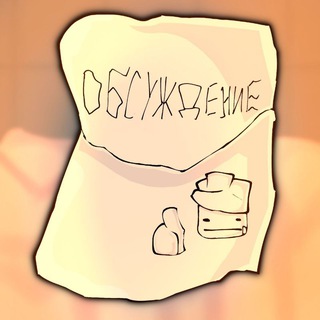 ОБСУЖДЕНИЕ